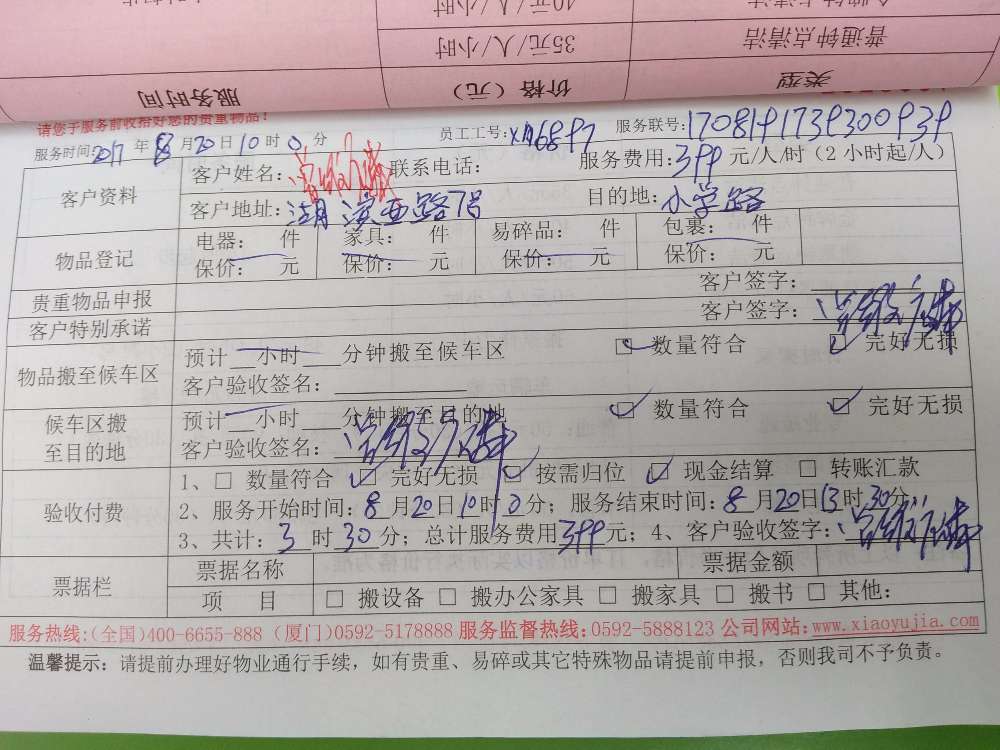 10元/人/小时
普通钟点清洁 35元/人/小时
类型 价格（元） 服务时间
请您于服务前收拾好您的贵重物品！
服务时间：2017年8月20日10时0分 员工工号： 服务联号：
客户资料 客户姓名： 联系电话： 服务费用：399元/人/时（2小时起/人）
客户地址：湖滨西路7号 目的地：小学路
物品登记 电器： 件 家具： 件 易碎品： 件 包裹： 件
保价： 元 保价： 元 保价： 元 保价： 元
贵重物品申报 客户签字：
客户特别承诺 客户签字：
物品搬至候车区 预计__小时___分钟搬至候车区 □ 数量符合 □ 完好无损
客户验收签名：
候车区搬至目的地 预计__小时___分钟搬至目的地 □ 数量符合 □ 完好无损
客户验收签名：
验收付费 1、□ 数量符合 □ 完好无损 □ 按需归位 □ 现金结算 □ 转账汇款
2、服务开始时间：8月20日10时0分；服务结束时间：8月20日13时30分
3、共计：3时30分；总计服务费用399元；4、客户验收签字：
票据栏 票据名称 票据金额
项 目 □ 搬设备 □ 搬办公家具 □ 搬家具 □ 搬书 □ 其他：
服务热线:(全国)400-6655-888 (厦门)0592-5178888 服务监督热线:0592-5888123 公司网站:www.xiaoyujia.com
温馨提示：请提前办理好物业通行手续，如有贵重、易碎或其它特殊物品请提前申报，否则我司不予负责。